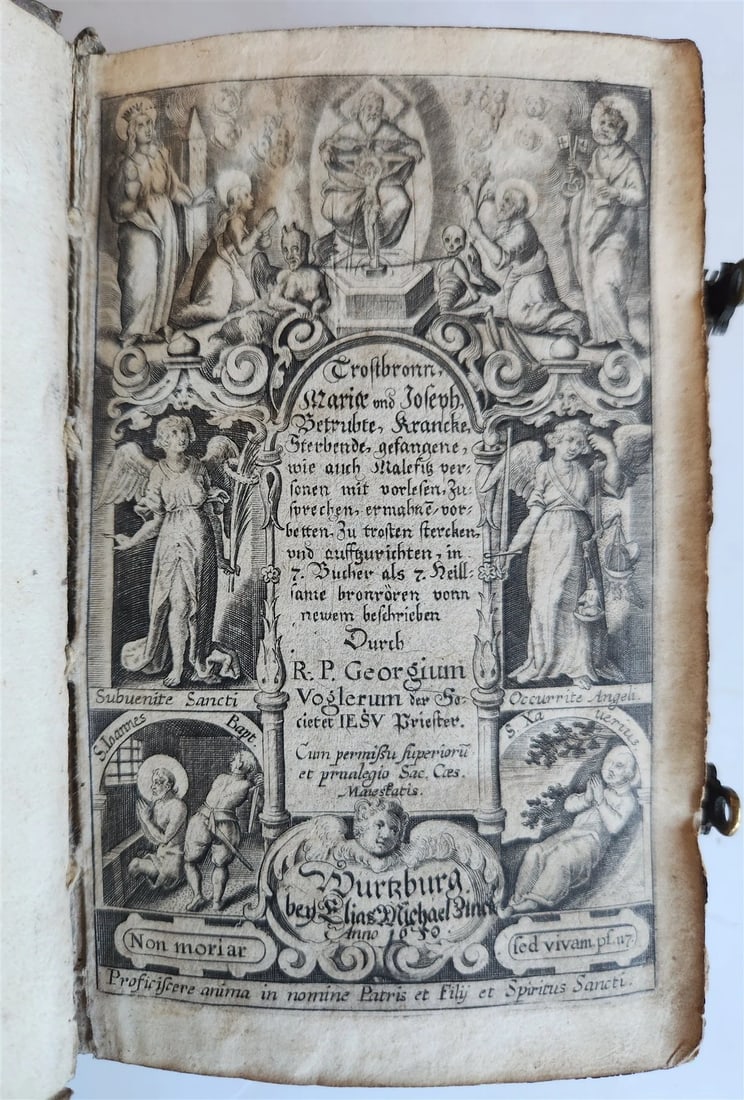 Trostbronn,
Mariæ vnd Joseph,
Betrubte, Krancke,
Sterbende, gefangene,
wie auch Malefitz per-
sonen mit vorlesen, Zu-
sprechen, ermahnē, vor-
betten, Zu trosten stercken,
vnd auffzurichten, in
7. Bucher als 7. Heill-
same bronrören vonn
newem beschrieben
Durch
R. P. Georgium
Voglerum der So-
cietet IESV Priester.
Cum permißu superiorū
et priuilegio Sac. Cæs.
Maiestatis.
Subuenite Sancti
Occurrite Angeli.
S. Ioannes Bapt.
S. Xauerius
Wurtzburg.
bey Elias Michael Zinck
Anno 1650.
Non moriar
sed vivam ps. 117.
Proficiscere anima in nomine Patris et Filij et Spiritus Sancti.